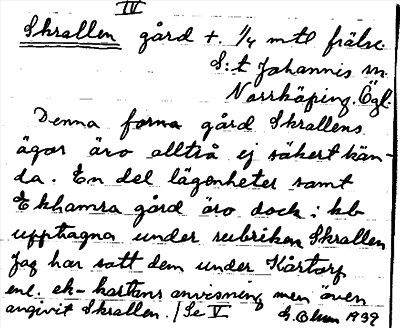 IV
Skrallen gård +. 1/4 mtl frälse.
S:t Johannis sn.
Norrköping. Ögl.
Denna forna gård Skrallens
ägor äro alltså ej säkert kän-
da. En del lägenheter samt
Ekhamra gård äro dock i kb
upptagna under rubriken Skrallen
Jag har satt dem under Kårtorp
enl. ek-kartans anvisning men även
angivit Skrallen. / Se V
S. Olsson 1939